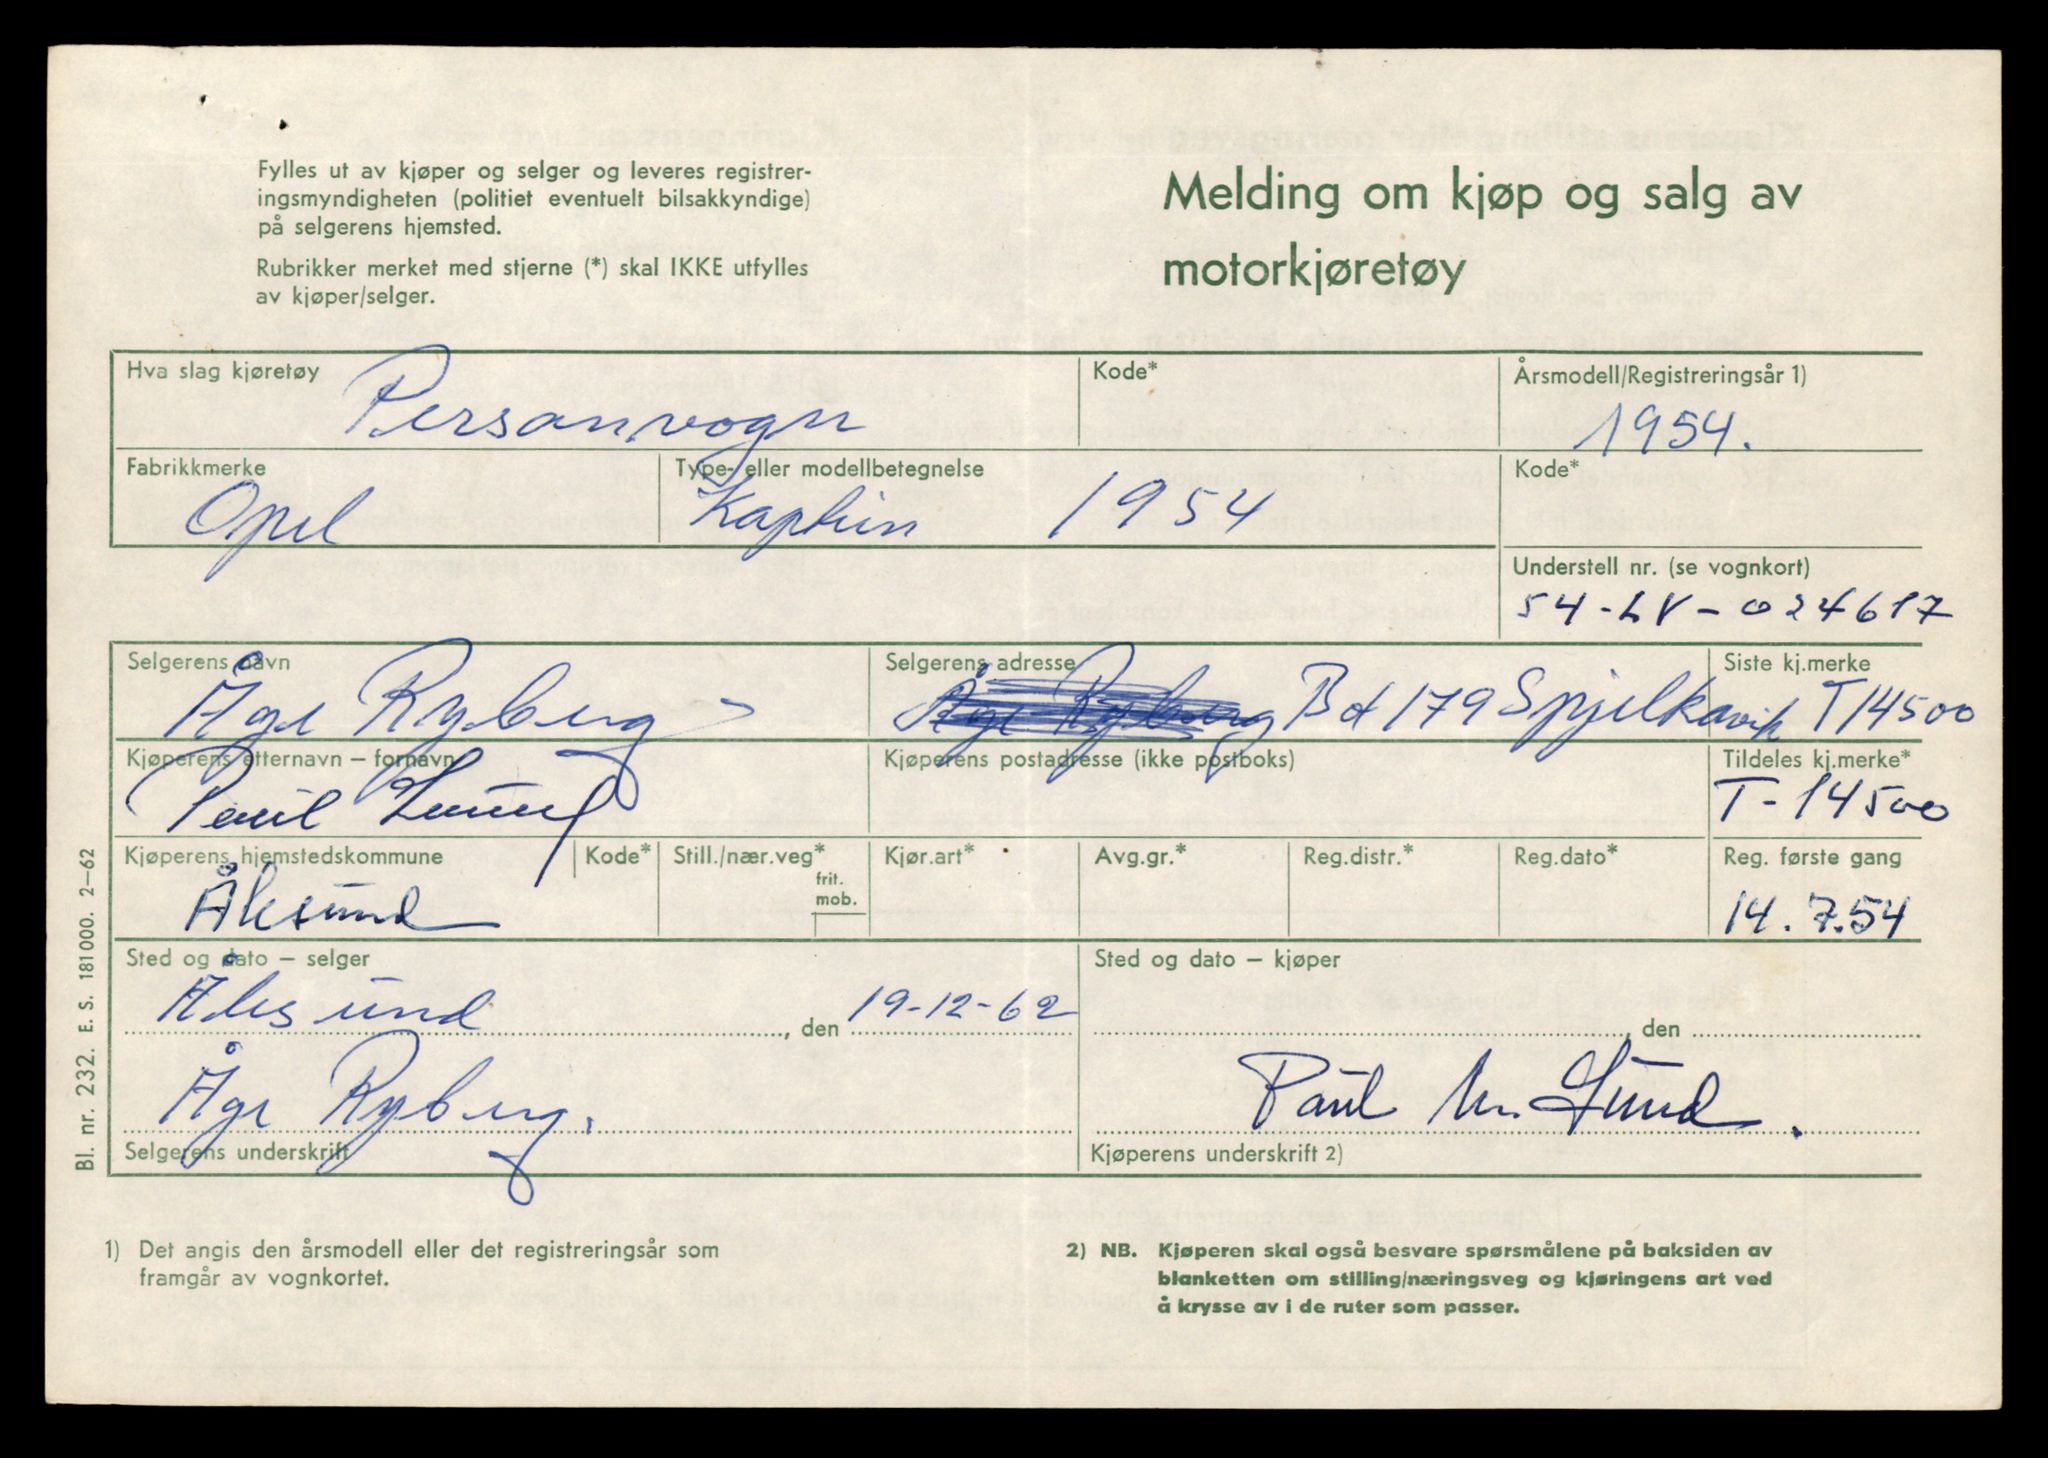 Fylles ut av kjøper og selger og leveres registrer-
ingsmyndigheten (politiet eventuelt bilsakkyndige)
på selgerens hjemsted.
Rubrikker merket med stjerne (*) skal IKKE utfylles
av kjøper/selger.
Melding om kjøp og salg av
motorkjøretøy
Hva slag kjøretøy
Personvogn
Kode*
Årsmodell/Registreringsår 1)
1954.
Fabrikkmerke
Opel
Type- eller modellbetegnelse
Kaptein 1954
Kode*
Understell nr. (se vognkort)
54-LV-024617
Selgerens navn
Åge Ryberg
Selgerens adresse
Åge Ryberg Bd 179 Spjelkavik
Siste kj.merke
T14500
Kjøperens etternavn – fornavn
Paul Lund
Kjøperens postadresse (ikke postboks)
Tildeles kj.merke*
T-14500
Kjøperens hjemstedskommune
Ålesund
Kode*
Still./nær.veg*
frit.
mob.
Kjør.art*
Avg.gr.*
Reg.distr.*
Reg.dato*
Reg. første gang
14.7.54
Sted og dato – selger
Ålesund, den 19-12-62
Åge Ryberg.
Selgerens underskrift
Sted og dato – kjøper
, den
Paul M. Lund.
Kjøperens underskrift 2)
Bl. nr. 232. E. S. 181000. 2–62
1) Det angis den årsmodell eller det registreringsår som
framgår av vognkortet.
2) NB. Kjøperen skal også besvare spørsmålene på baksiden av
blanketten om stilling/næringsveg og kjøringens art ved
å krysse av i de ruter som passer.